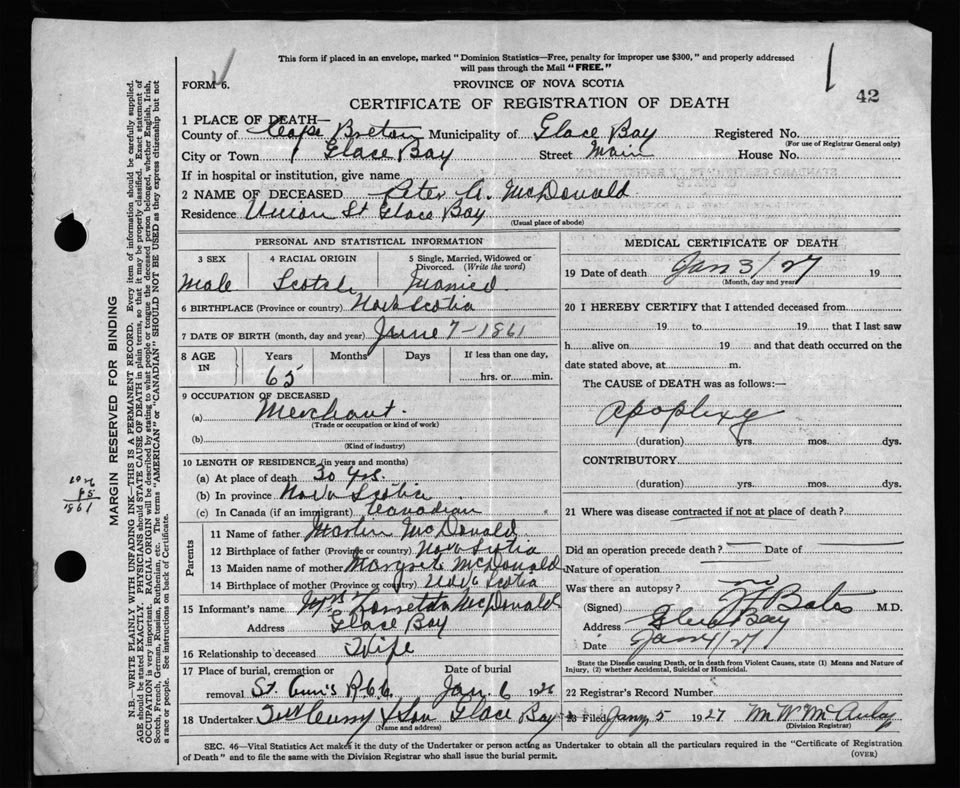 This form if placed in an envelope, marked "Dominion Statistics—Free, penalty for improper use $300," and properly addressed
will pass through the Mail "FREE."
FORM 6.
PROVINCE OF NOVA SCOTIA
42
CERTIFICATE OF REGISTRATION OF DEATH
1 PLACE OF DEATH—
County of Cape Breton Municipality of Glace Bay Registered No.
(For use of Registrar General only)
City or Town Glace Bay Street Main House No.
If in hospital or institution, give name
2 NAME OF DECEASED Peter A. McDonald
Residence Union St Glace Bay
(Usual place of abode)
PERSONAL AND STATISTICAL INFORMATION
3 SEX 4 RACIAL ORIGIN 5 Single, Married, Widowed or Divorced. (Write the word)
Male Scotch Married
6 BIRTHPLACE (Province or country) Nova Scotia
7 DATE OF BIRTH (month, day and year) June 7-1861
8 AGE IN Years Months Days If less than one day,
65 hrs. or min.
9 OCCUPATION OF DECEASED
(a) Merchant.
(Trade or occupation or kind of work)
(b)
(Kind of industry)
10 LENGTH OF RESIDENCE (in years and months)
(a) At place of death 30 yrs.
(b) In province Nova Scotia
(c) In Canada (if an immigrant) Canadian
Parents
11 Name of father Martin McDonald
12 Birthplace of father (Province or country) Nova Scotia
13 Maiden name of mother Margret McDonald
14 Birthplace of mother (Province or country) Nova Scotia
15 Informant's name Mrs McDonald
Address Glace Bay
16 Relationship to deceased Wife
17 Place of burial, cremation or removal Date of burial
St. Ann's Jan. 6 1926
18 Undertaker & Son Glace Bay
(Name and address)
MEDICAL CERTIFICATE OF DEATH
19 Date of death Jan 3/27 19
(Month, day and year)
20 I HEREBY CERTIFY that I attended deceased from
19 to 19 , that I last saw
h alive on 19 and that death occurred on the
date stated above, at m.
The CAUSE of DEATH was as follows:—
Apoplexy
(duration) yrs. mos. dys.
CONTRIBUTORY
(duration) yrs. mos. dys.
21 Where was disease contracted if not at place of death?
Did an operation precede death? Date of
Nature of operation
Was there an autopsy? no
(Signed) Bates M.D.
Address Glace Bay
Date Jan 4/27
State the Disease causing Death, or in death from Violent Causes, state (1) Means and Nature of
Injury, (2) whether Accidental, Suicidal or Homicidal.
22 Registrar's Record Number
23 Filed Jany 5 1927 M W McAulay
(Division Registrar)
SEC. 46—Vital Statistics Act makes it the duty of the Undertaker or person acting as Undertaker to obtain all the particulars required in the "Certificate of Registration
of Death" and to file the same with the Division Registrar who shall issue the burial permit.
(OVER)
MARGIN RESERVED FOR BINDING
N.B.—WRITE PLAINLY WITH UNFADING INK—THIS IS A PERMANENT RECORD. Every item of information should be carefully supplied.
AGE should be stated EXACTLY. PHYSICIANS should STATE CAUSE OF DEATH in plain terms, so that it may be properly classified. Exact statement of
OCCUPATION is very important. RACIAL ORIGIN will be described by stating to what people or tongue the deceased person belonged, whether English, Irish,
Scotch, French, German, Russian, Ruthenian, etc. The terms "AMERICAN" or "CANADIAN" SHOULD NOT BE USED as they express citizenship but not
a race or people. See instructions on back of Certificate.
1861